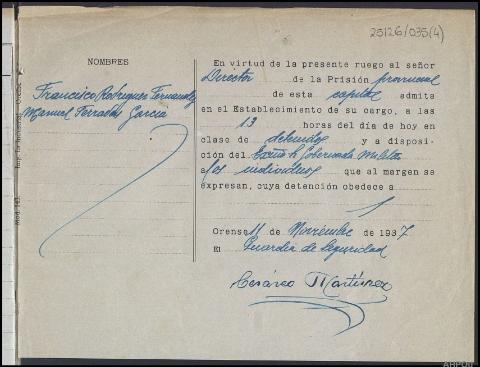 25126/035(4)
NOMBRES
Francisco Rodriguez Fernandez
Manuel Ferradas Garcia
En virtud de la presente ruego al señor
Director de la Prisión provincial
de esta capital admita
en el Establecimiento de su cargo, a las
13 horas del día de hoy en
clase de detenidos y a disposi-
ción del Gobernador Militar
a los individuos que al margen se
expresan, cuya detención obedece a
Orense 11 de Noviembre de 1937
El Guardia de Seguridad
Cesáreo Martinez
Mod. 143
AHPOU